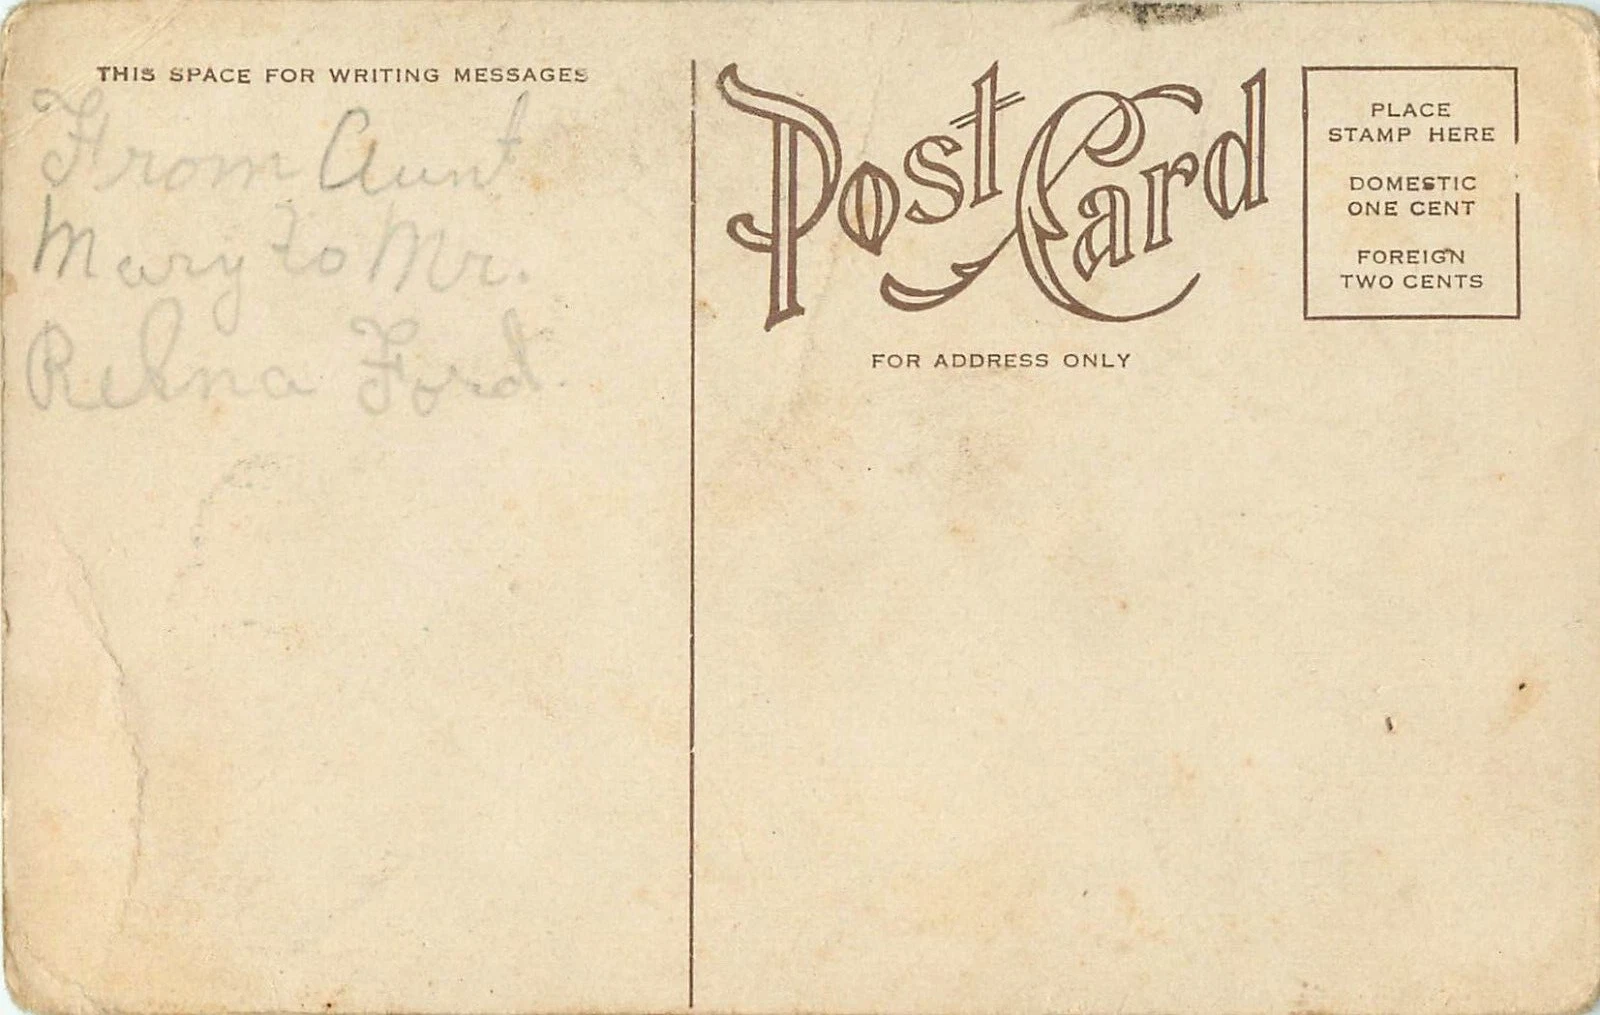 THIS SPACE FOR WRITING MESSAGES
From Aunt
Mary to Mr.
Ford.
Post Card
FOR ADDRESS ONLY
PLACE
STAMP HERE
DOMESTIC
ONE CENT
FOREIGN
TWO CENTS